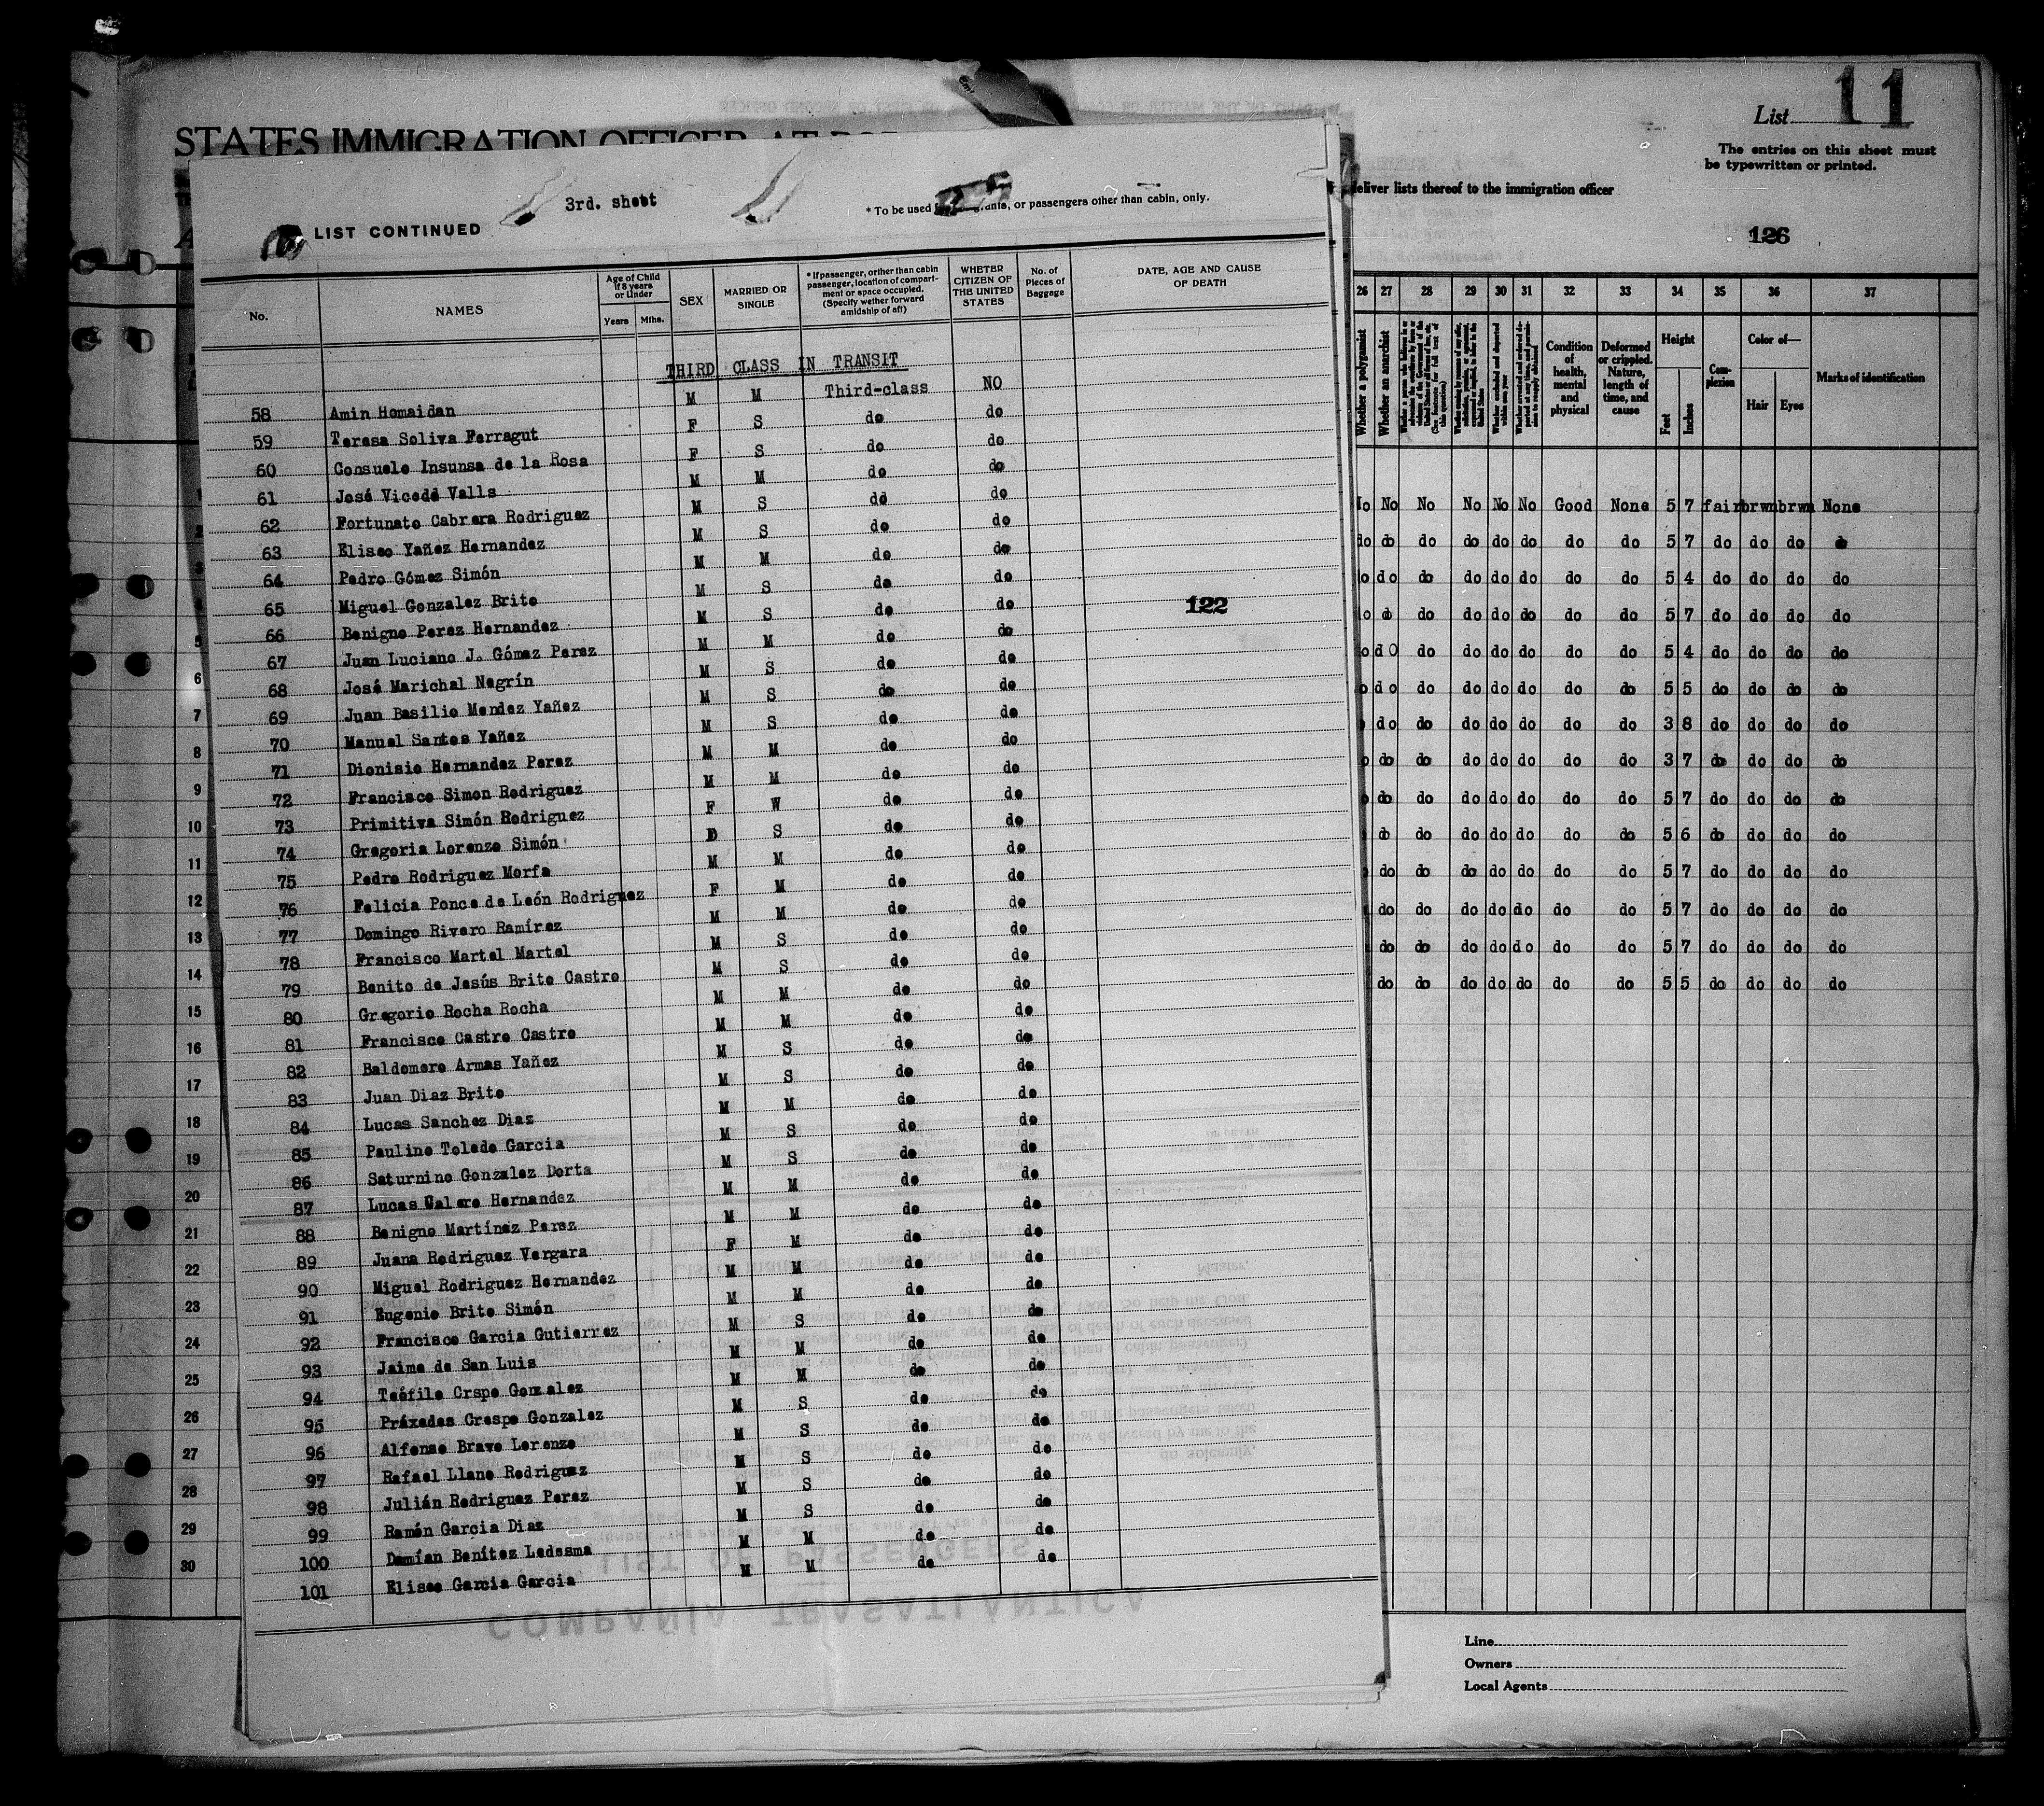 STATES IMMIGRATION OFFICER AT
List 11
The entries on this sheet must
be typewritten or printed.
deliver lists thereof to the immigration officer
126
3rd. sheet
* To be used or passengers other than cabin, only.
LIST CONTINUED
No. NAMES Age of Child if 8 years or Under Years Mths. SEX MARRIED OR SINGLE * If passenger, orither than cabin passenger, location of compartment or space occupied. (Specify wether forward amidship of aft) WHETER CITIZEN OF THE UNITED STATES No. of Pieces of Baggage DATE, AGE AND CAUSE OF DEATH
THIRD CLASS IN TRANSIT
58 Amin Homaidan M M Third-class NO
59 Teresa Soliva Ferragut F S do do
60 Consuelo Insunsa de la Rosa F S do do
61 José Vicedo Valls M M do do
62 Fortunato Cabrera Rodriguez M S do do
63 Eliseo Yañez Hernandez M S do do
64 Pedro Gómez Simón M M do do
65 Miguel Gonzalez Brito M S do do
66 Benigno Perez Hernandez M S do do 122
67 Juan Luciano J. Gómez Perez M M do do
68 José Marichal Negrín M S do do
69 Juan Basilio Mendez Yañez M S do do
70 Manuel Santos Yañez M S do do
71 Dionisio Hernandez Perez M M do do
72 Francisco Simon Rodriguez M M do do
73 Primitiva Simón Rodriguez F W do do
74 Gregoria Lorenzo Simón S do do
75 Pedro Rodriguez Morfa M M do do
76 Felicia Ponce de León Rodriguez F M do do
77 Domingo Rivero Ramírez M M do do
78 Francisco Martel Martel M S do do
79 Benito de Jesús Brito Castro M S do do
80 Gregorio Rocha Rocha M M do do
81 Francisco Castro Castro M M do do
82 Baldomero Armas Yañez M S do do
83 Juan Diaz Brito M S do do
84 Lucas Sanchez Diaz M M do do
85 Paulino Toledo Garcia M S do do
86 Saturnino Gonzalez Dorta M S do do
87 Lucas Calero Hernandez M M do do
88 Benigno Martínez Perez M M do do
89 Juana Rodriguez Vergara F M do do
90 Miguel Rodriguez Hernandez M M do do
91 Eugenio Brito Simón M M do do
92 Francisco Garcia Gutierrez M S do do
93 Jaime de San Luis M M do do
94 Teófilo Crspo Gonzalez M M do do
95 Práxedes Crespo Gonzalez M S do do
96 Alfonso Bravo Lorenzo M S do do
97 Rafael Llano Rodriguez M S do do
98 Julián Rodriguez Perez M S do do
99 Ramón Garcia Diaz M S do do
100 Damían Benítez Ledesma M M do do
101 Eliseo Garcia Garcia M M do do
26 27 28 29 30 31 32 33 34 35 36 37
Whether a polygamist
Whether an anarchist
Condition of health, mental and physical
Deformed or crippled. Nature, length of time, and cause
Height Feet Inches
Complexion
Color of— Hair Eyes
Marks of identification
No No No No No No Good None 5 7 fair brwn brwn None
do do do do do do do do 5 7 do do do do
do do do do do do do do 5 4 do do do do
do do do do do do do do 5 7 do do do do
do do do do do do do do 5 4 do do do do
do do do do do do do do 5 5 do do do do
do do do do do do do 3 8 do do do do
do do do do do do do 3 7 do do do do
do do do do do do do 5 7 do do do do
do do do do do do do 5 6 do do do do
do do do do do do do 5 7 do do do do
do do do do do do do 5 7 do do do do
do do do do do do do 5 7 do do do do
do do do do do do do 5 5 do do do do
5
6
7
8
9
10
11
12
13
14
15
16
17
18
19
20
21
22
23
24
25
26
27
28
29
30
COMPAÑÍA TRASATLANTICA
LIST OF PASSENGERS
Line
Owners
Local Agents